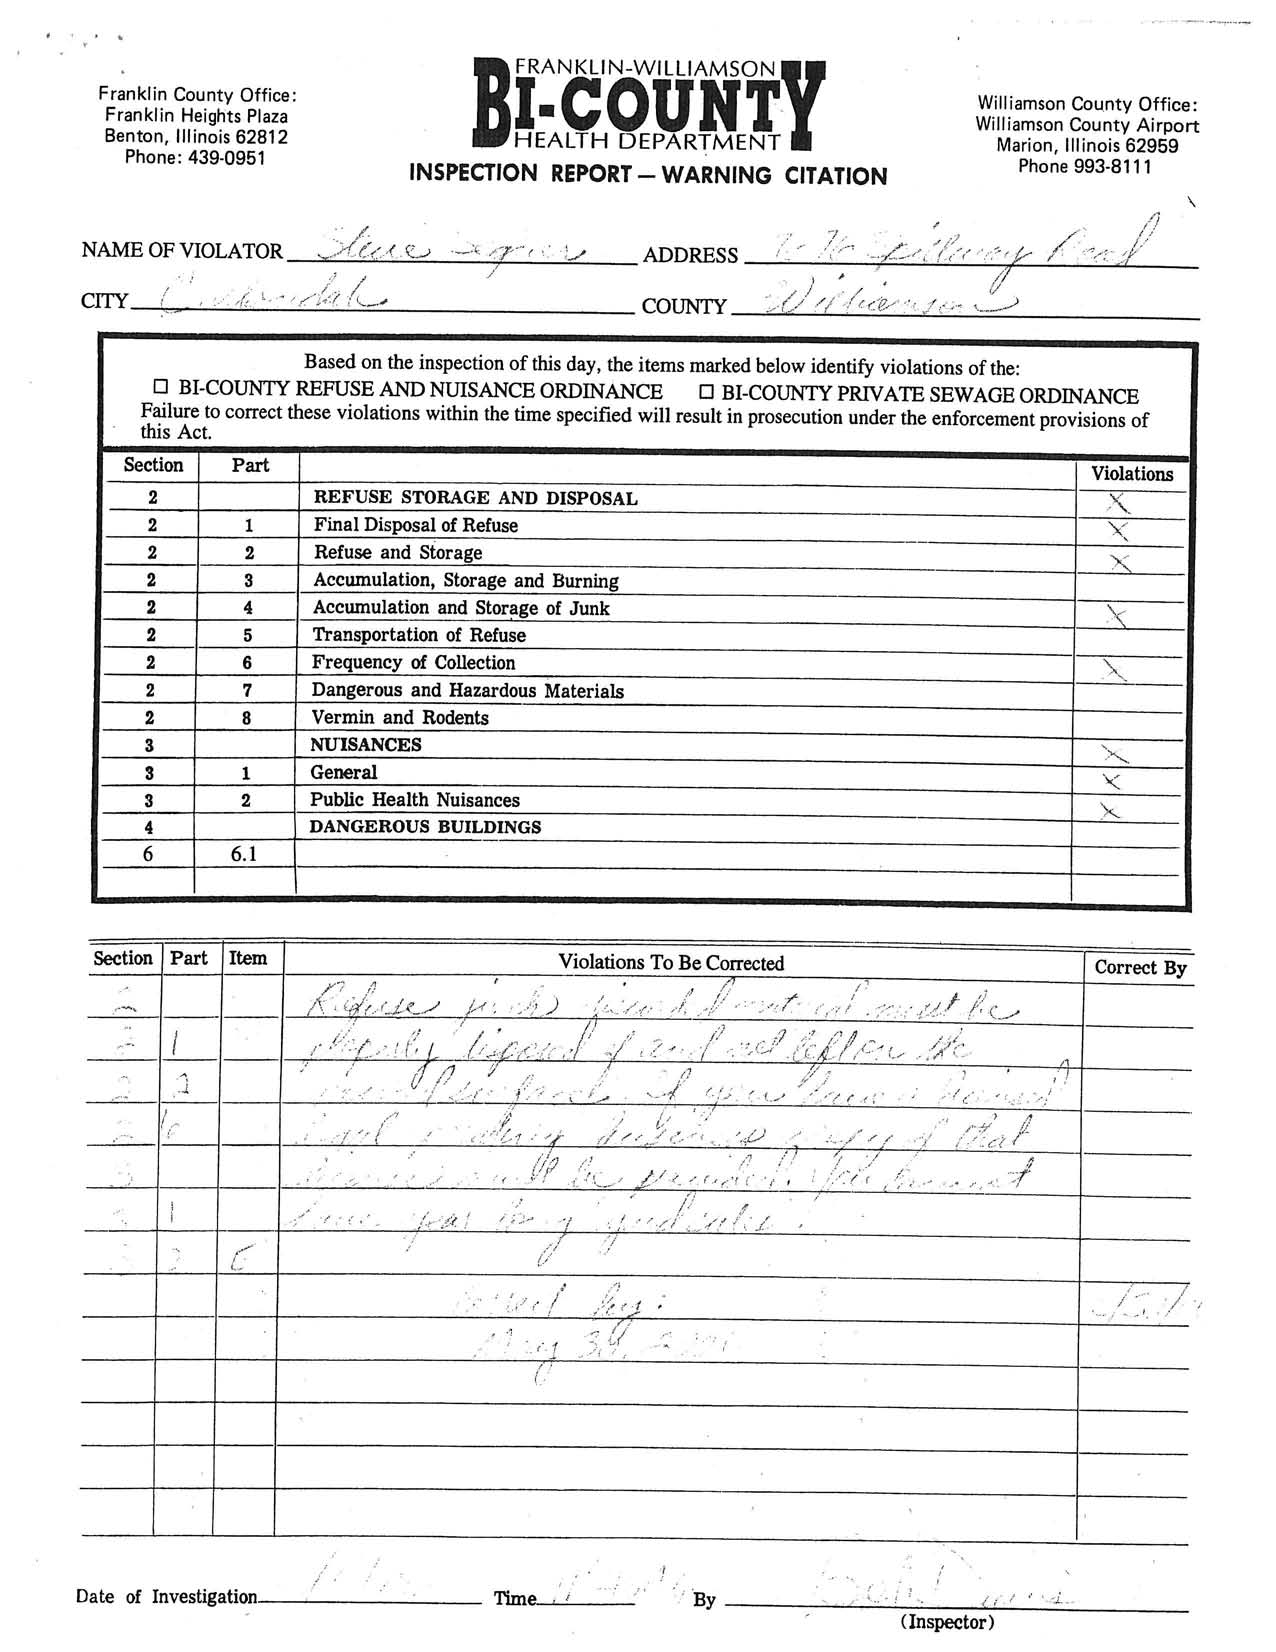 FRANKLIN-WILLIAMSON
BI-COUNTY
HEALTH DEPARTMENT
INSPECTION REPORT — WARNING CITATION
Franklin County Office:
Franklin Heights Plaza
Benton, Illinois 62812
Phone: 439-0951
Williamson County Office:
Williamson County Airport
Marion, Illinois 62959
Phone 993-8111
NAME OF VIOLATOR Steve ADDRESS Spillway Road
CITY COUNTY Williamson
Based on the inspection of this day, the items marked below identify violations of the:
☐ BI-COUNTY REFUSE AND NUISANCE ORDINANCE ☐ BI-COUNTY PRIVATE SEWAGE ORDINANCE
Failure to correct these violations within the time specified will result in prosecution under the enforcement provisions of
this Act.
Section Part Violations
2 REFUSE STORAGE AND DISPOSAL X
2 1 Final Disposal of Refuse X
2 2 Refuse and Storage X
2 3 Accumulation, Storage and Burning
2 4 Accumulation and Storage of Junk X
2 5 Transportation of Refuse
2 6 Frequency of Collection X
2 7 Dangerous and Hazardous Materials
2 8 Vermin and Rodents
3 NUISANCES X
3 1 General X
3 2 Public Health Nuisances X
4 DANGEROUS BUILDINGS
6 6.1
Section Part Item Violations To Be Corrected Correct By
2 Refuse junk must be
2 1 properly disposed of and not left on the
2 2 If you have a
2 6 copy of that
3 will be provided. You cannot
3 1 have year long yard sales.
3 2
by:
May 30,
Date of Investigation Time By
(Inspector)